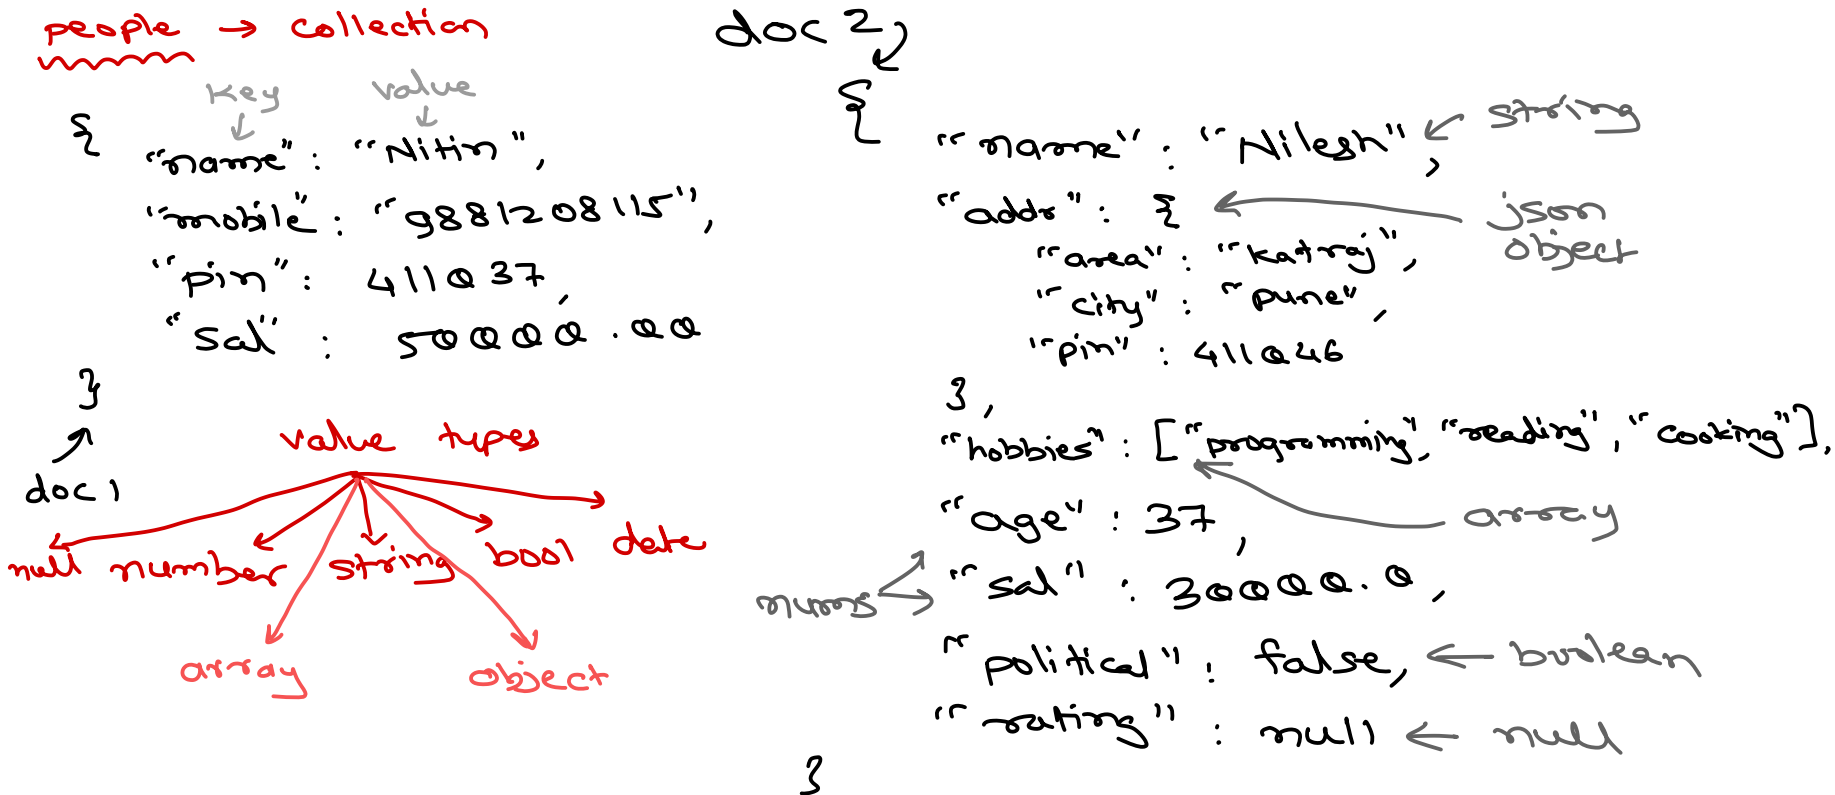 people → collection
key value
{
"name" : "Nitin",
"mobile" : "9881208115",
"pin" : 411037,
"sal" : 50000.00
}
doc1
value types
null number string bool date
array object
doc 2
{
"name" : "Nilesh", ← string
"addr" : { ← json object
"area" : "katraj",
"city" : "pune",
"pin" : 411046
},
"hobbies" : ["programming", "reading", "cooking"],
array
"age" : 37,
nums
"sal" : 30000.0,
"political" : false, ← boolean
"rating" : null ← null
}